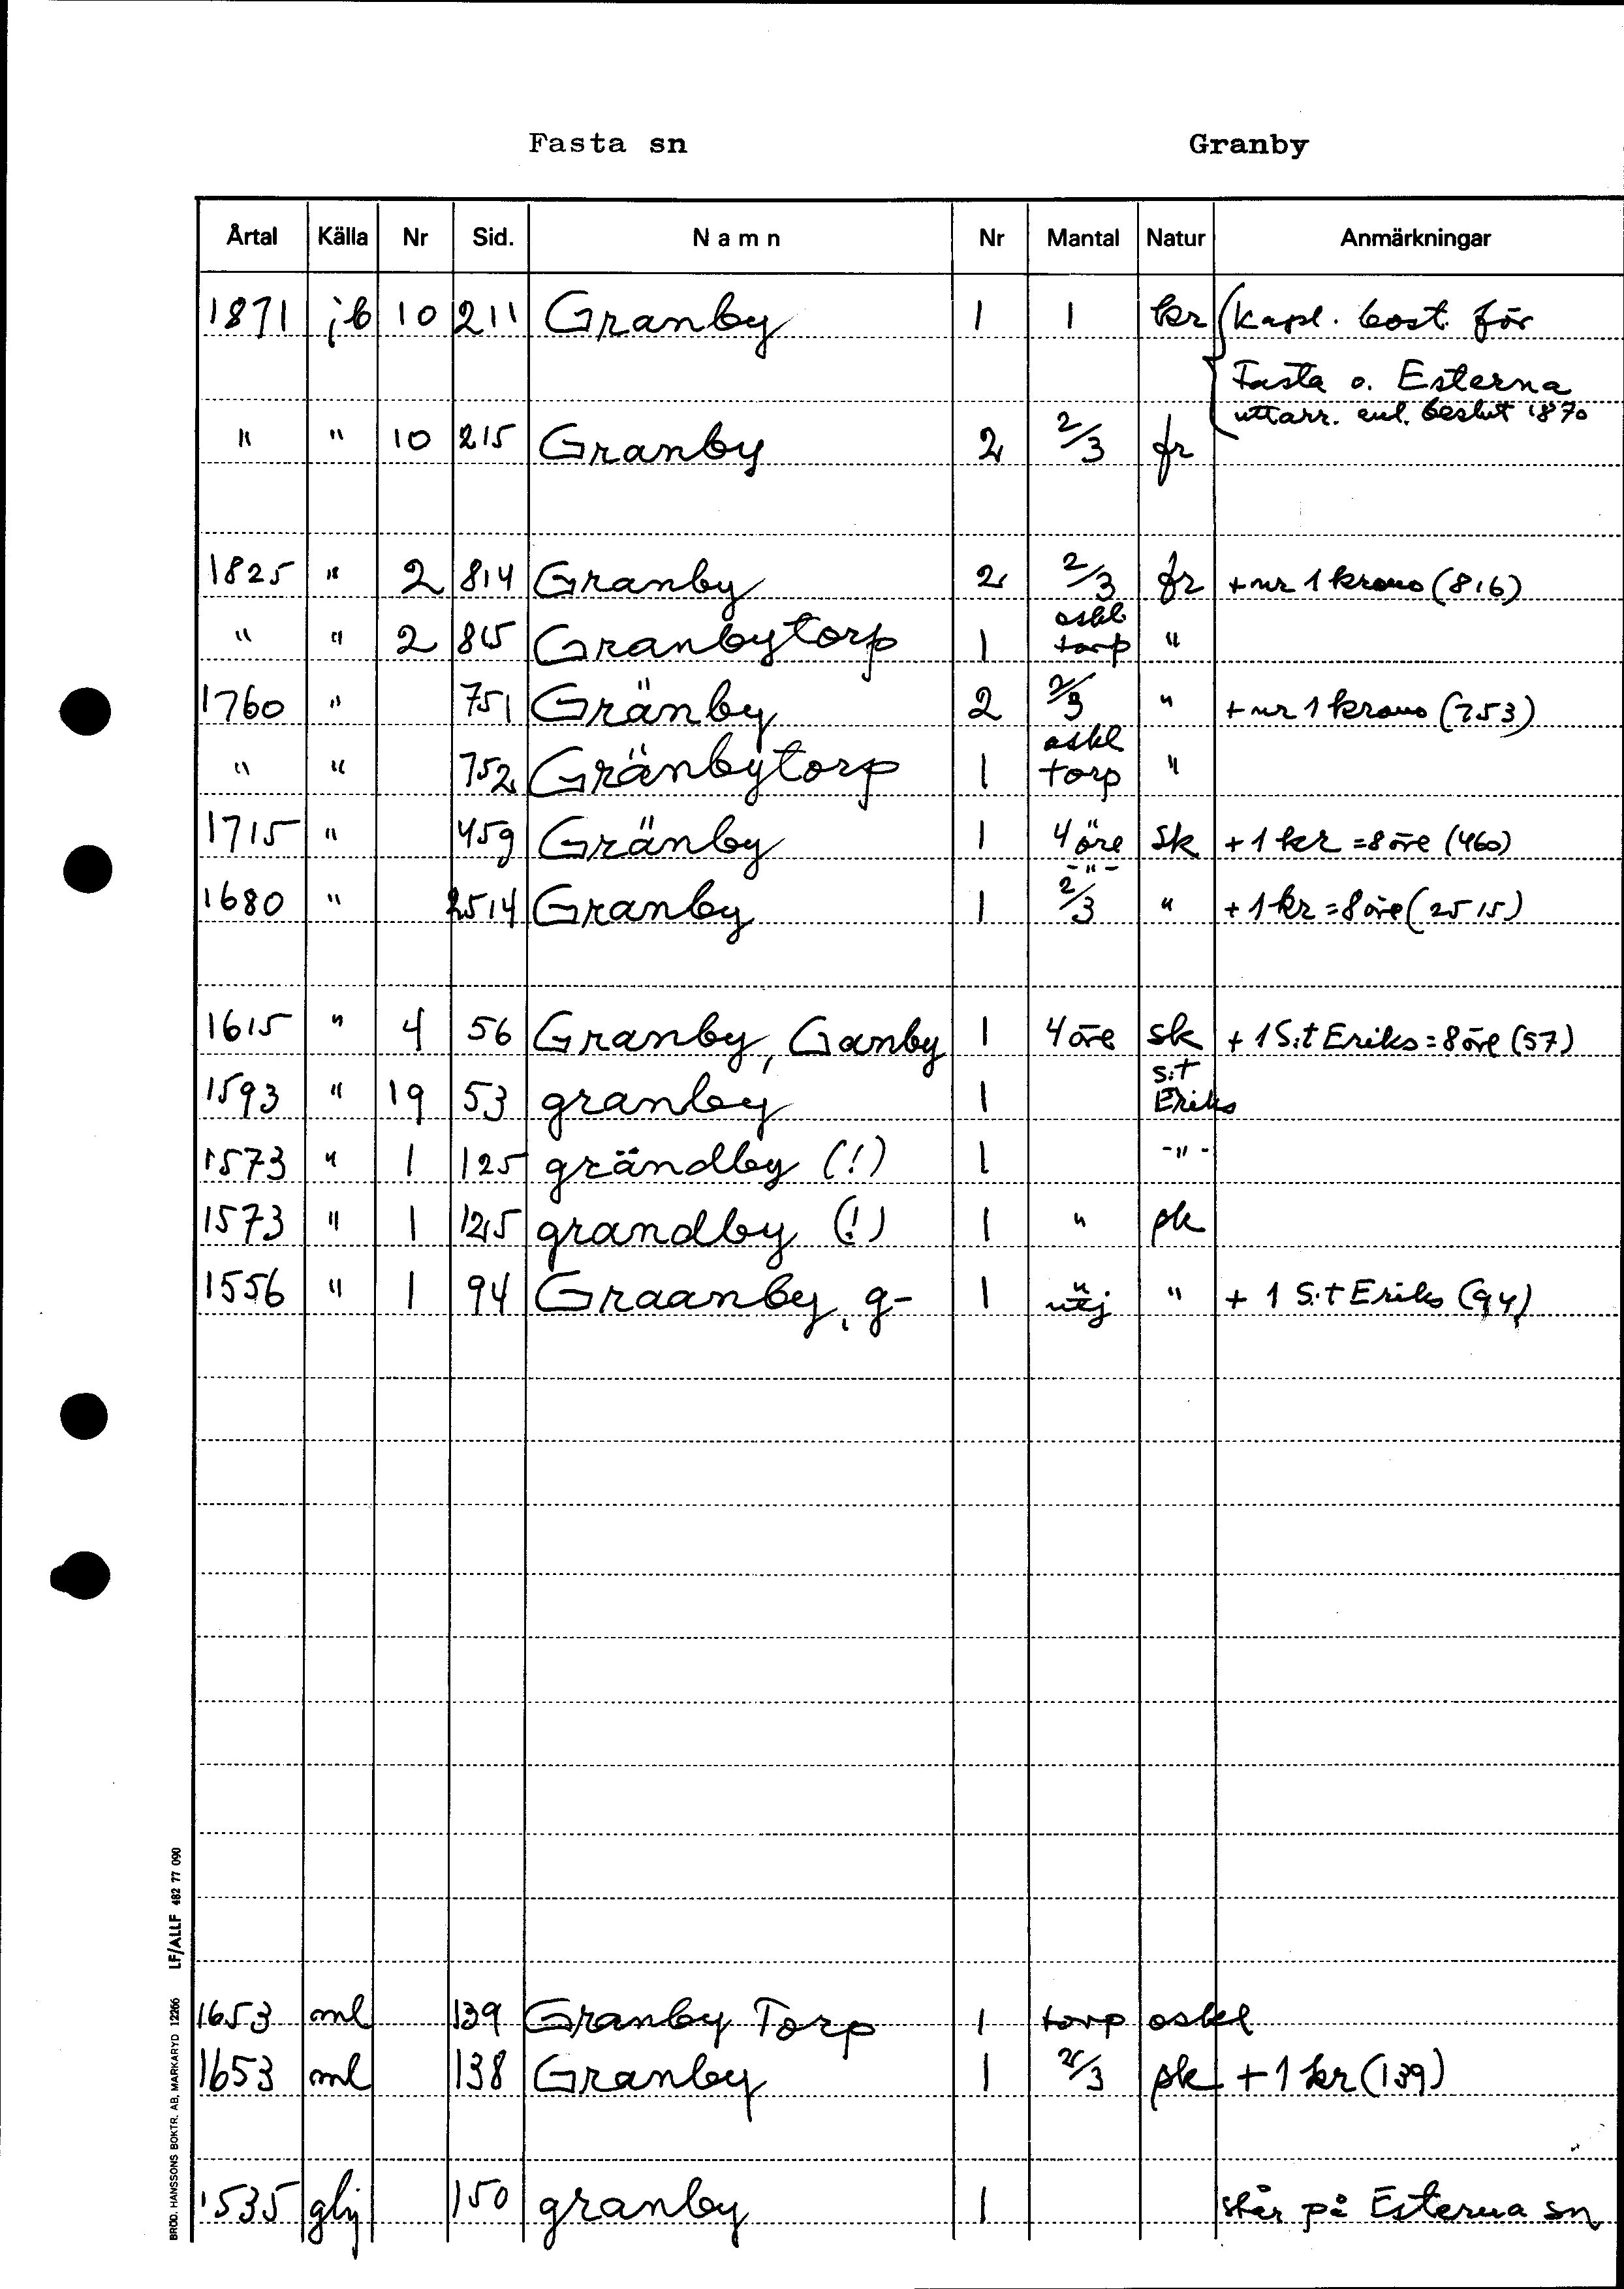 Fasta sn Granby
Årtal Källa Nr Sid. Namn Nr Mantal Natur Anmärkningar
1871 jb 10 211 Granby 1 1 kr kapl. bost. för
Fasta o. Esterna
uttarr. enl. beslut 1870
" " 10 215 Granby 2 2/3 fr
1825 " 2 814 Granby 2 2/3 fr + nr 1 krono (816)
" " 2 815 Granbytorp 1 oskl torp "
1760 " 751 Gränby 2 2/3 " + nr 1 krono (753)
" " 752 Gränbytorp 1 oskl torp "
1715 " 459 Gränby 1 4 öre sk + 1 kr = 8 öre (460)
1680 " 2514 Granby 1 -"- 2/3 " + 1 kr = 8 öre (2515)
1615 " 4 56 Granby, Ganby 1 4 öre sk + 1 S:t Eriks = 8 öre (57)
1593 " 19 53 granby 1 S:t Eriks
1573 " 1 125 grändby (!) 1 -"-
1573 " 1 125 grandby (!) 1 " sk
1556 " 1 94 Graanby, g- 1 " + 1 S:t Eriks (94)
1653 ml 139 Granby Torp 1 torp oskl
1653 ml 138 Granby 1 2/3 sk + 1 kr (139)
1535 glj 150 granby 1 står på Esterna sn
BRÖD. HANSSONS BOKTR. AB, MARKARYD 12266 LF/ALLF 482 77 090